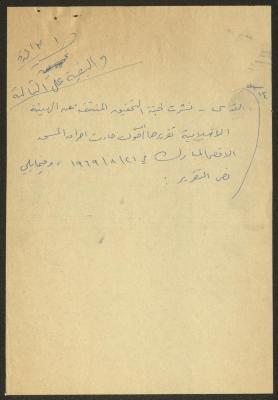 والبقية على التالية
القدس - نشرت لجنة التحقيق المنبثقة عن الهيئة
الاسلامية تقريرها حول حادث احراق المسجد
الاقصى المبارك في ٢١ / ٨ / ١٩٦٩، وفيما يلي
نص التقرير :